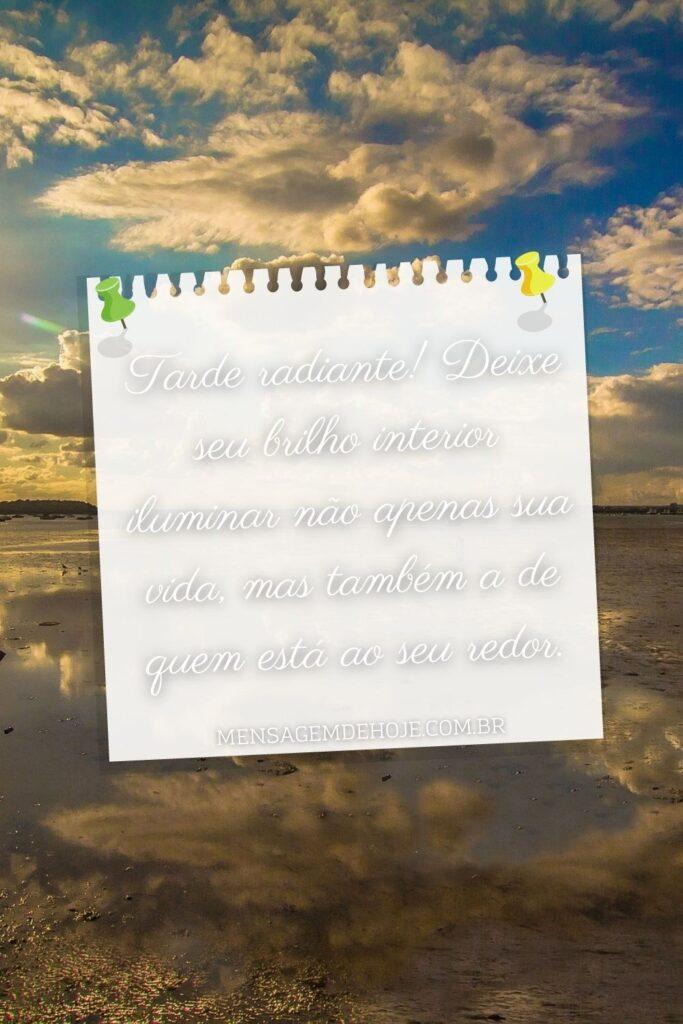 Tarde radiante! Deixe
seu brilho interior
iluminar não apenas sua
vida, mas também a de
quem está ao seu redor.
MENSAGEMDEHOJE.COM.BR